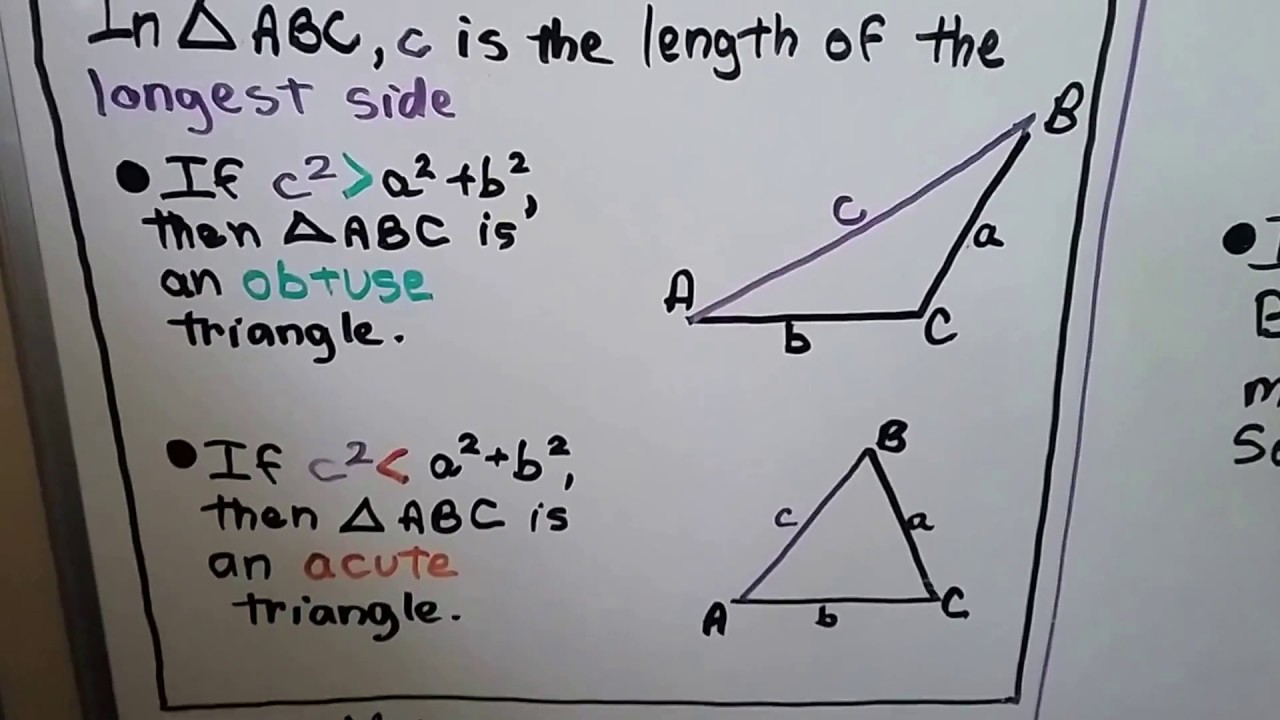 In △ABC, c is the length of the
longest side
• If c² > a² + b²,
then △ABC is
an obtuse
triangle.
B
c
a
A
b
C
• If c² < a² + b²,
then △ABC is
an acute
triangle.
B
c
a
A
b
C